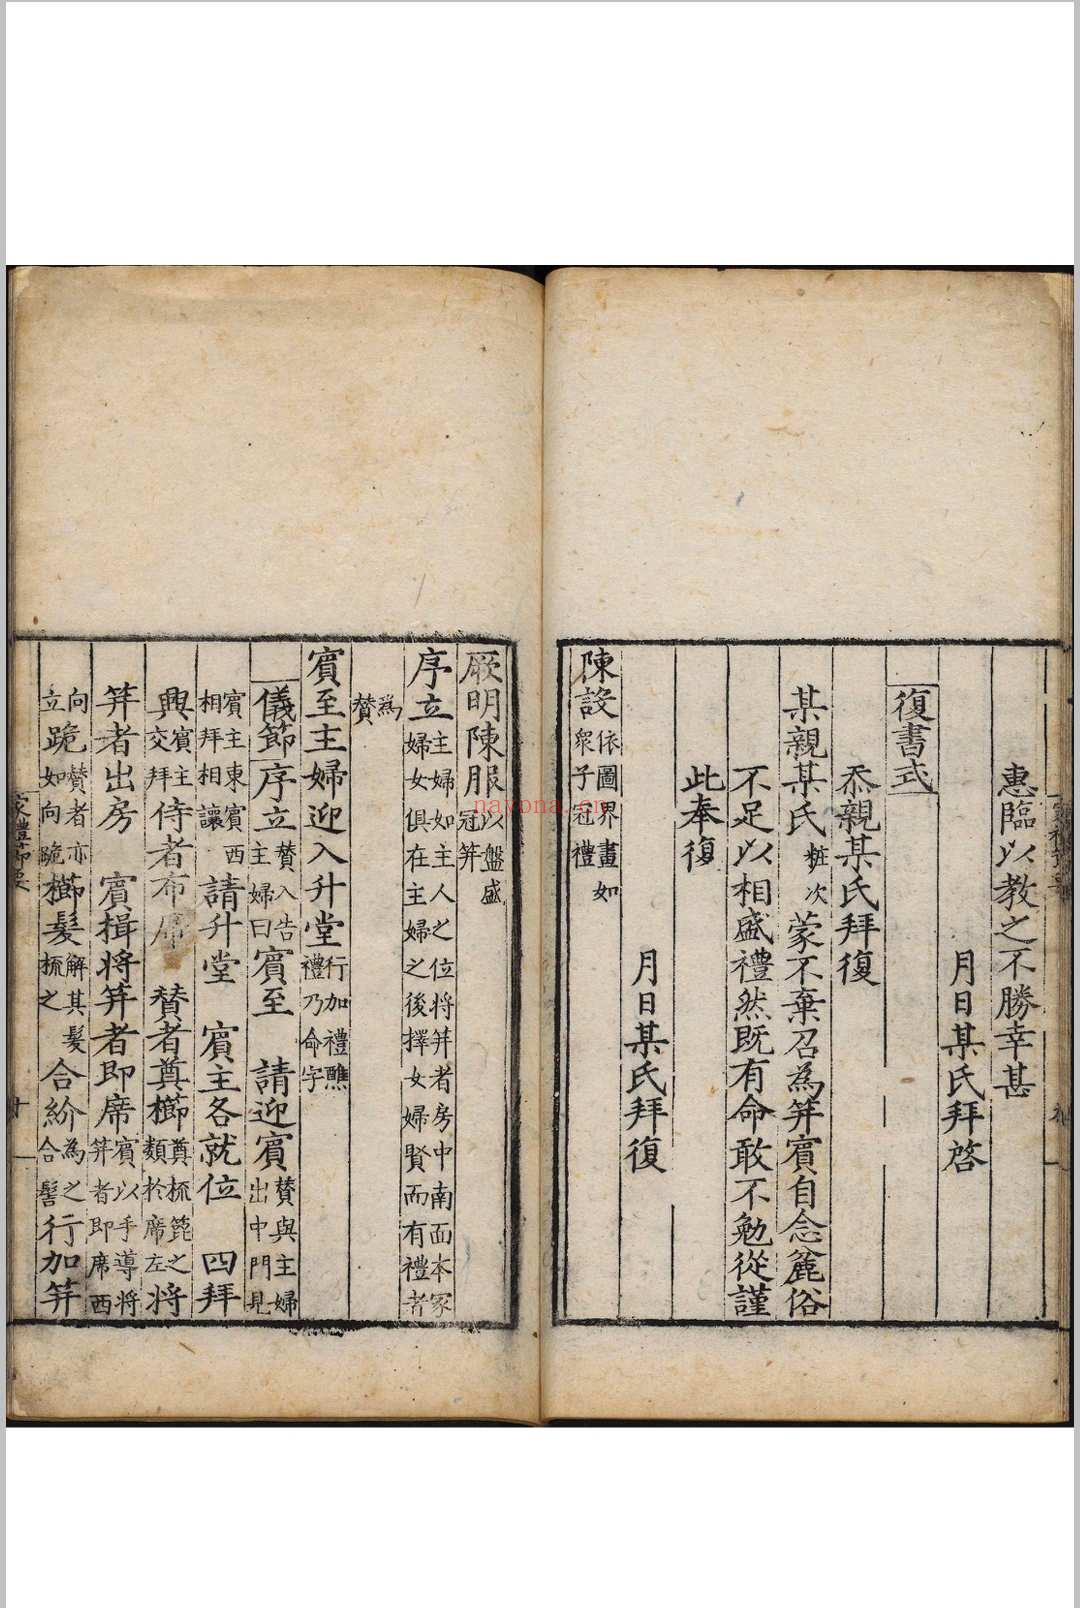 惠臨以教之不勝幸甚
月日某氏拜啓
復書式
忝親某氏拜復
某親某氏粧次蒙不棄召為筓賓自念麄俗
不足以相盛禮然既有命敢不勉從謹
此奉復
月日某氏拜復
陳設依圖界畫如眾子冠禮
厥明陳服以盤盛冠筓
序立主婦如主人之位將筓者房中南面本家婦女俱在主婦之後擇女婦賢而有禮者
為贊
賓至主婦迎入升堂行加禮醮禮乃命字
儀節序立贊入告主婦曰賓至 請迎賓贊與主婦出中門見
賓主東賓西相拜相讓請升堂 賓主各就位 四拜
興賓主交拜侍者布席 贊者奠櫛奠梳篦之類於席左將
筓者出房 賓揖將筓者即席賓以手導將筓者即席西
向立跪贊者亦如向跪櫛髮解其髮梳之合紒為之合髻行加筓
家禮節要
十
nayona.cn